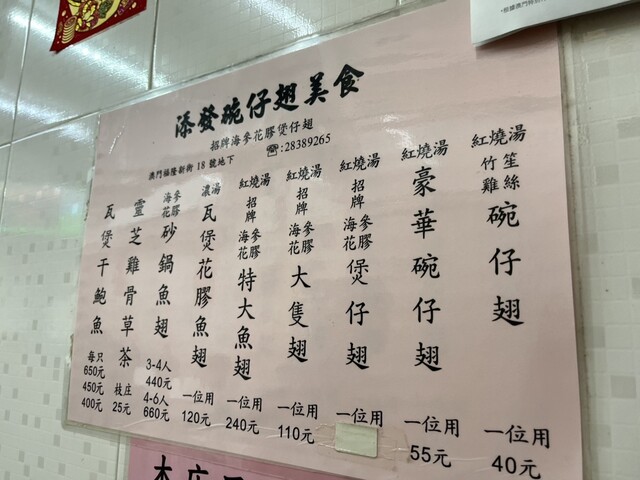 添發碗仔翅美食
招牌海參花膠煲仔翅
澳門福隆新街 18 號地下 ☎:28389265
紅燒湯 竹笙雞絲 碗仔翅 一位用 40元
紅燒湯 豪華碗仔翅 一位用 55元
紅燒湯 招牌 海參花膠 煲仔翅 一位用
紅燒湯 招牌 海參花膠 大隻翅 一位用 110元
紅燒湯 招牌 海參花膠 特大魚翅 一位用 240元
濃湯 瓦煲花膠魚翅 一位用 120元
海參花膠 砂鍋魚翅 3-4人 440元 4-6人 660元
靈芝雞骨草茶 枝庄 25元
瓦煲干鮑魚 每只 650元 450元 400元